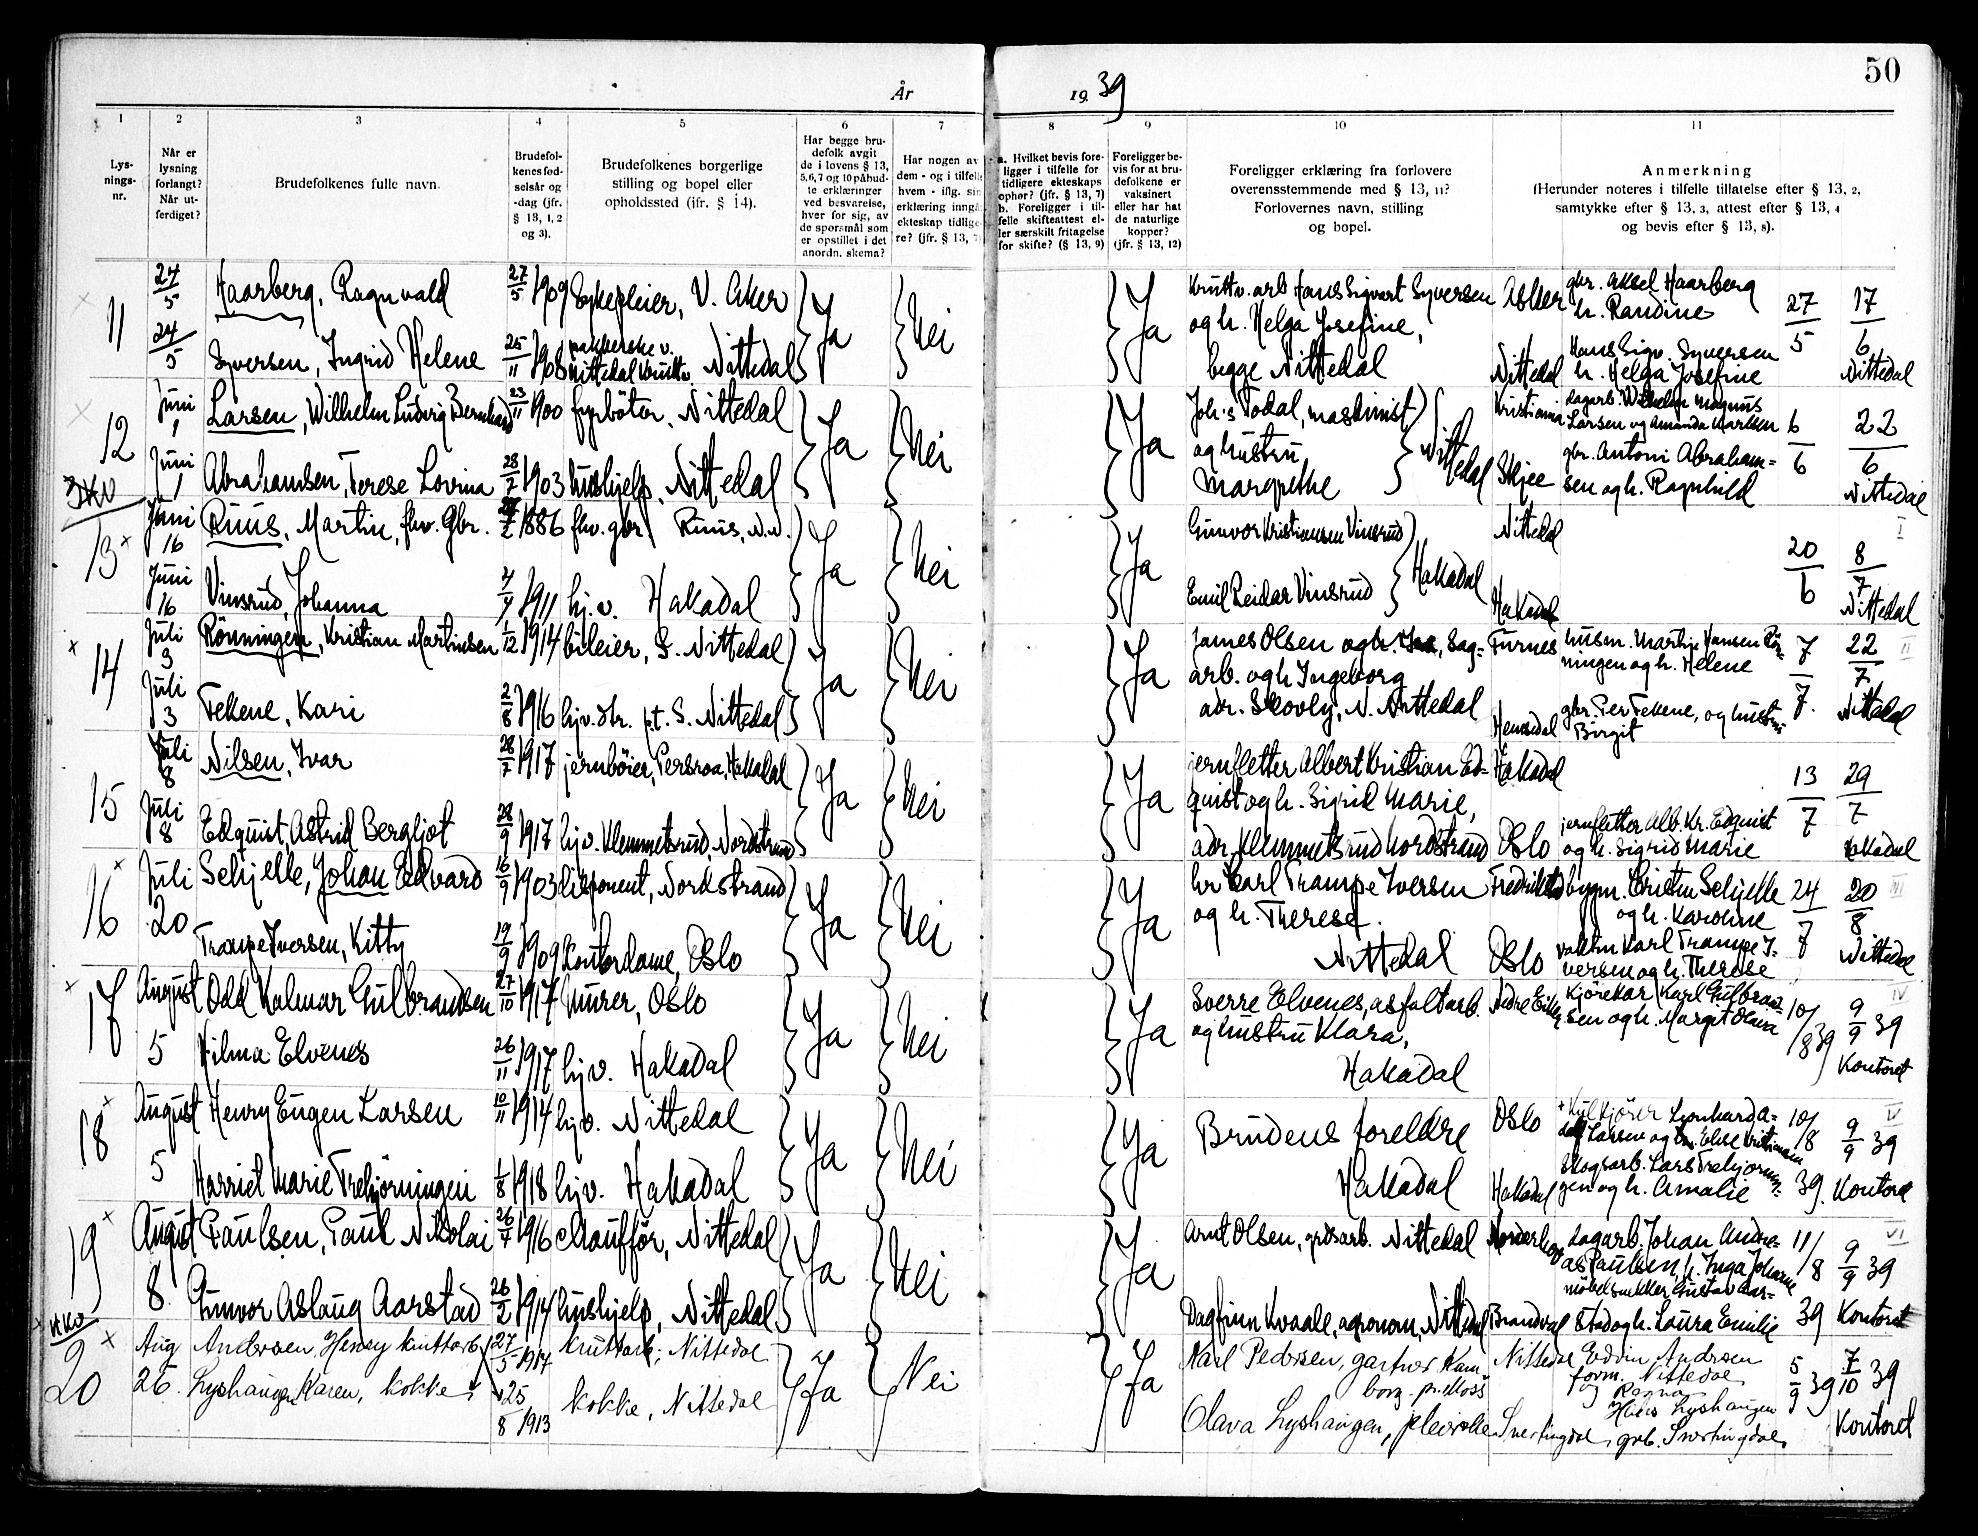 50
År
19 39
1
2
3
4
5
6
7
8
9
10
11
Lys-
nings-
nr.
Når er
lysning
forlangt?
Når ut-
ferdiget?
Brudefolkenes fulle navn.
Brudefol-
kenes fød-
selsår og
-dag (jfr.
§ 13, 1, 2
og 3).
Brudefolkenes borgerlige
stilling og bopel eller
opholdssted (jfr. § 14).
Har begge bru-
defolk avgit
de i lovens § 13,
5, 6, 7 og 10 påbud-
te erklæringer
ved besvarelse,
hver for sig, av
de spørsmål som
er opstillet i det
anordn. skema?
Har nogen av
dem - og i tilfelle
hvem - iflg. sin
erklæring inngå
ekteskap tidlige-
re? (jfr. § 13, 7)
a. Hvilket bevis fore-
ligger i tilfelle for
tidligere ekteskaps
ophør? (jfr. § 13, 7)
b. Foreligger i til-
felle skifteattest el-
ler særskilt fritagelse
for skifte? (§ 13, 9)
Foreligger be-
vis for at bru-
defolkene er
vaksinert
eller har hat
de naturlige
kopper?
(jfr. § 13, 12)
Foreligger erklæring fra forlovere
overensstemmende med § 13, 11?
Forlovernes navn, stilling
og bopel.
Anmerkning
(Herunder noteres i tilfelle tillatelse efter § 13, 2,
samtykke efter § 13, 3, attest efter § 13, 4
og bevis efter § 13, 8).
11
24/5 Haarberg, Ragnvald 27/5 1909 Sykepleier, V. Aker Ja Nei Ja Kruttv. arb Hans Sigvart Syversen Asker gbr. Aksel Haarberg 27/5 17/6
og h. Helga Josefine, h. Randine
24/5 Syversen, Ingrid Helene 25/11 1908 pakkerske v. Nittedal Kruttv. Nittedal begge Nittedal Nittedal Hans Sigv. Syversen
h. Helga Josefine Nittedal
12
Juni 1 Larsen, Wilhelm Ludvig Bernhard 23/11 1900 fyrbøter, Nittedal Ja Nei Ja Joh's Todal, maskinist Kristiania dagarb. Wilhelm Magnus 6/6 22/6
og hustru Nittedal Larsen og Amanda Karlsen
Juni 1 Abrahamsen, Terese Lovina 28/7 1903 hushjelp, Nittedal Margrethe Skjee gbr. Antoni Abraham=
sen og h. Ragnhild Nittedal
13
Juni 16 Ruus, Martin, fhv. Gbr. 1886 fhv. gbr. Ruus, N.N. Ja Nei Ja Gunvor Kristiansen Vinsrud Nittedal 20/6 8/7 I
Juni 16 Vinsrud, Johanna 1911 hj.v. Hakadal Emil Reidar Vinsrud Hakadal Hakadal Nittedal
14
Juli 3 Rönningen, Kristian Martinsen 1/12 1914 bileier, S. Nittedal Ja Nei Ja James Olsen og h. Sag= Furnes husm. Martin Hansen Rön- 7/7 22/7 II
arb. og h Ingeborg ningen og h. Helene
Juli 3 Fekene, Kari 2/8 1916 hjv. dtr. p.t. S. Nittedal adr. Skovly, N. Nittedal Hemsedal gbr. Per Fekene, og hustru
Birgit Nittedal
15
Juli 8 Nilsen, Ivar 28/7 1917 jernbøier, Persroa, Hakadal Ja Nei Ja jernfletter Albert Kristian Ed- Hakadal 13/7 29/7
quist og h. Sigrid Marie,
Juli 8 Edquist, Astrid Bergljot 28/9 1917 hjv. Klemmetsrud, Nordstrand adr. Klemmetsrud Nordstrand Oslo jernfletter Alb. Kr. Edquist
og h. Sigrid Marie Hakadal
16
Juli 20 Schjelle, Johan Edvard 16/9 1903 disponent, Nordstrand Ja Nei Ja hr Karl Trampe Iversen Fredrikstad bygm. Cristin Schjelle 24/7 20/8 III
og h. Therese. og h. Karoline
Trampe Iversen, Kitty 19/9 1909 Kontordame, Oslo Nittedal Oslo vaktm Karl Trampe I-
versen og h. Therese Nittedal
17
August 5 Odd Kalmar Gulbrandsen 27/10 1917 Murer, Oslo Ja Nei Ja Sverre Elvenes, asfaltarb. Nedre Eiker Kjørekar Karl Gulbran= 10/8 39 9/9 39 IV
og hustru Klara, sen og h. Margit Olava
Vilma Elvenes 26/11 1917 hjv. Hakadal Hakadal Kontoret
18
August 5 Henry Eugen Larsen 10/11 1914 hjv. Nittedal Ja Nei Ja Brudens foreldre Oslo + Kulkjører Leonhard A= 10/8 39. 9/9 39
dolf Larsen og h. Else
Harriet Marie Trehjørningen 1/8 1918 hjv. Hakadal Hakadal Hakadal Skogsarb. Lars Trehjørnin-
gen og h. Amalie Kontoret
19
August 8. Paulsen, Paul Nikolai 26/7 1916 chauffør, Nittedal Ja Nei Ja Arnt Olsen, grdsarb. Nittedal Norderhov dagarb. Johan Andre= 11/8 39 9/9 39 VI
as Paulsen, h. Inga Johanne
Gunvor Aslaug Aarstad 26/2 1914 hushjelp, Nittedal Dagfinn Kvaale, agronom, Nittedal Brandval møbelsnekker Gustav Aar-
stad og h. Laura Emilie Kontoret
20
Aug 26. Andersen, Henry kruttarb. 27/5 1914 kruttarb. Nittedal Ja Nei Ja Karl Pedersen, gartner Kam Nittedal Edvin Andersen 5/9 39 7/10 39
borg pr. Moss form. Nittedal
og Ragna
Lyshaugen Karen, kokke 25/8 1913 kokke, Nittedal Olava Lyshaugen, pleierske Svertingdal Hans Lyshaugen
grb. Svertingdal Kontoret